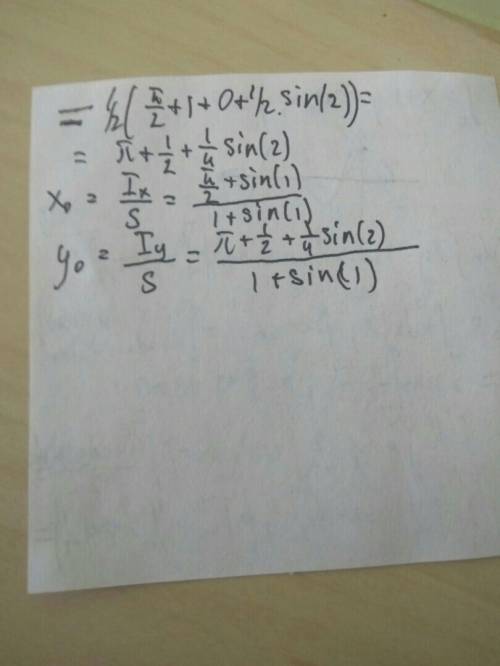 = 1/2(π/2+1+0+1/2.sin(2))=
= π+1/2+1/4sin(2)
x₀ = Ix/S = (π/2+sin(1))/(1+sin(1))
y₀ = Iy/S = (π+1/2+1/4sin(2))/(1+sin(-1))